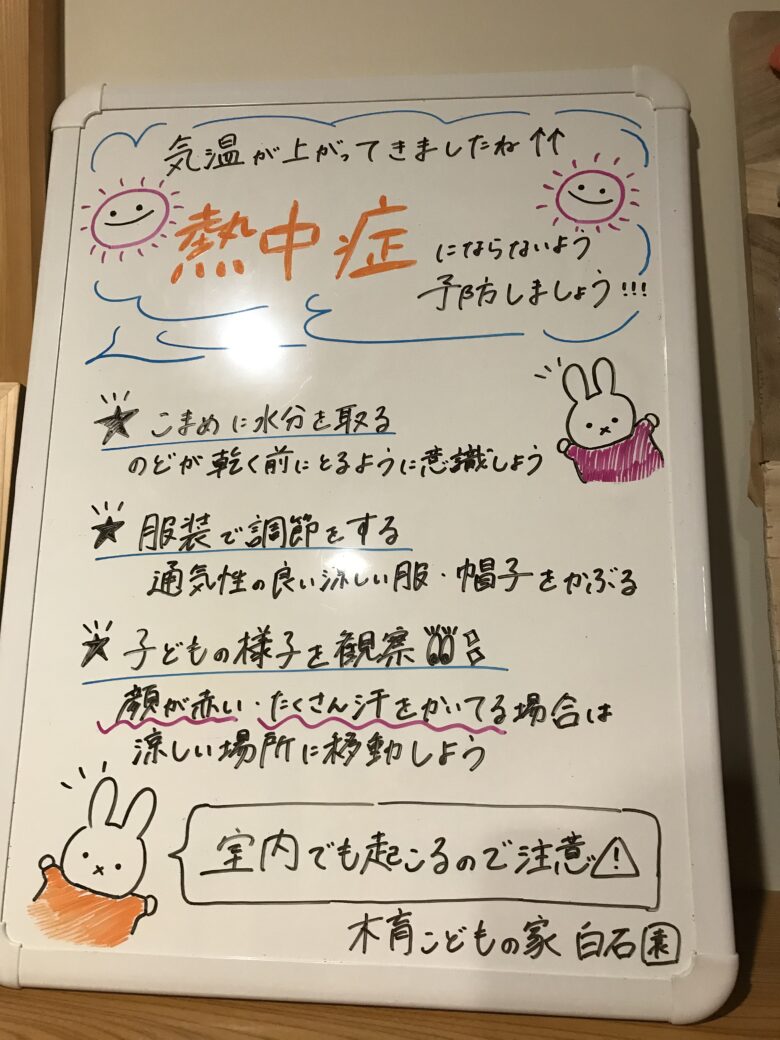 気温が上がってきましたね↑↑
熱中症にならないよう
予防しましょう!!!
★こまめに水分を取る
のどが乾く前にとるように意識しよう
★服装で調節をする
通気性の良い涼しい服・帽子をかぶる
★子どもの様子を観察
顔が赤い・たくさん汗をかいてる場合は
涼しい場所に移動しよう
室内でも起こるので注意⚠
木育こどもの家 白石